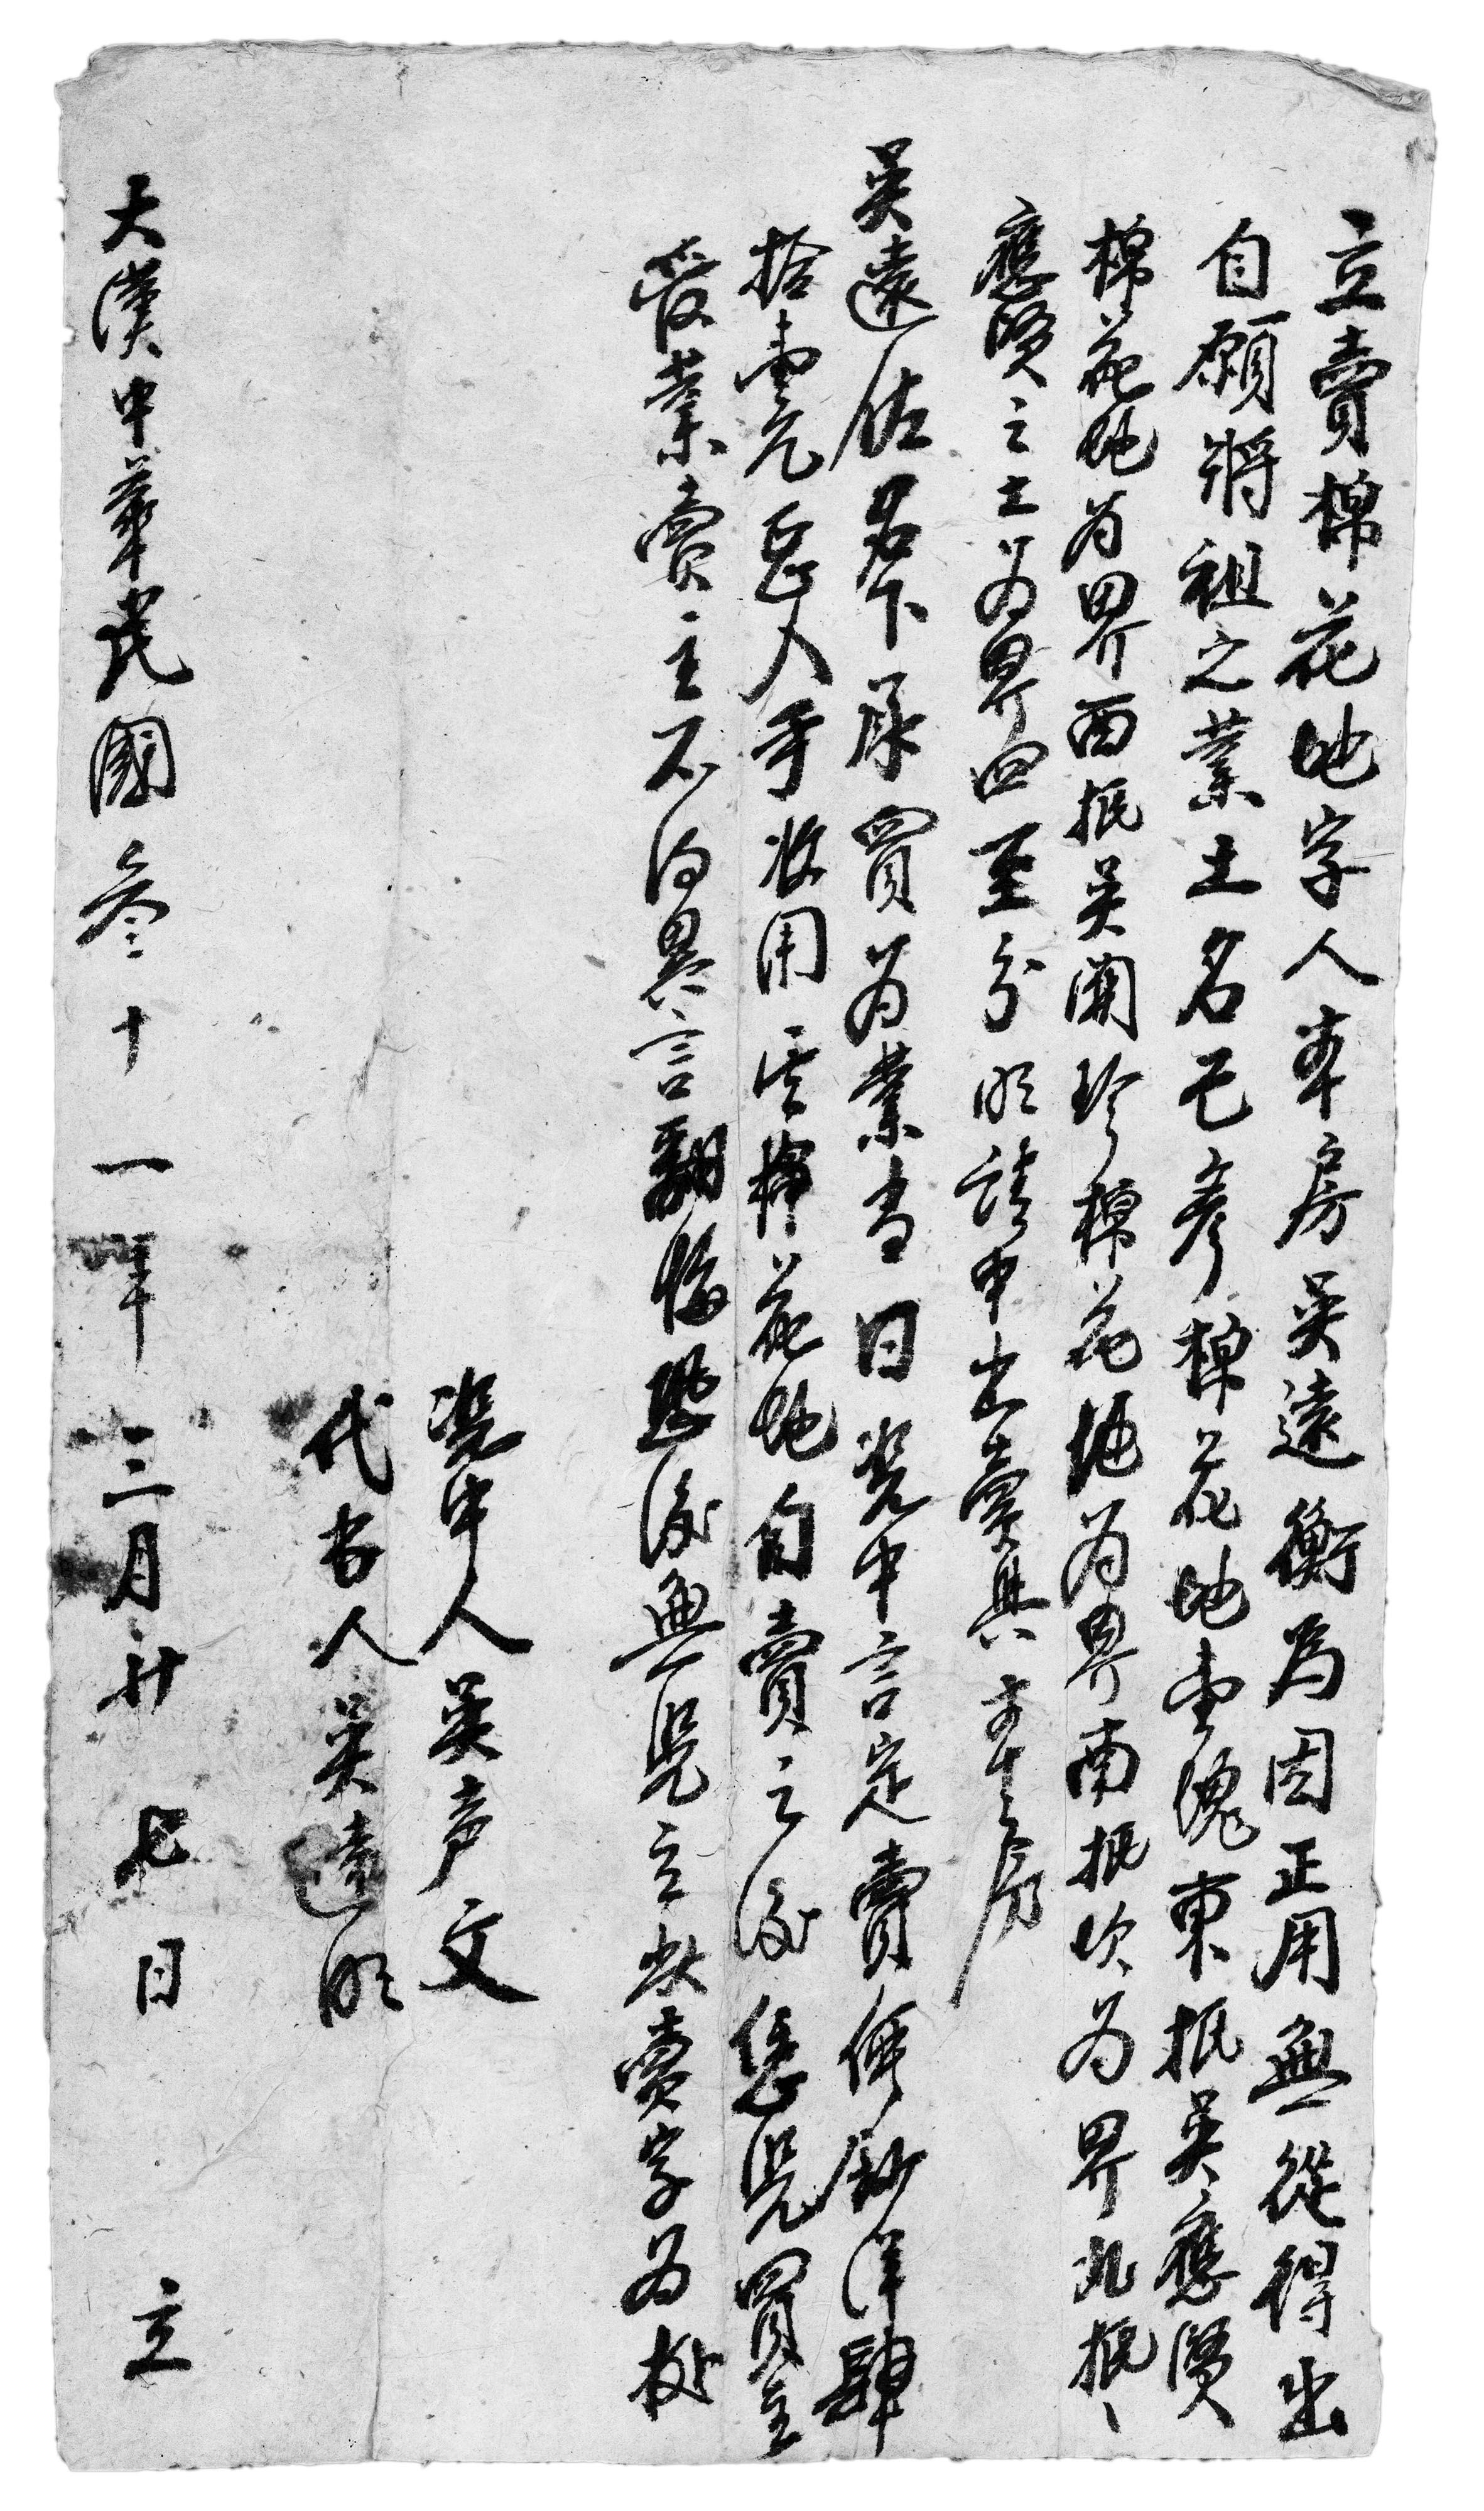 立賣棉花地字人本房吳遠衡為因正用無從得出
自願將祖之業土名毛彥棉花地壹塊東抵吳應賢
棉花地为界西抵吳開珍棉花地为界南抵坎为界北抵
應賢之土为界四至分明請中出賣與本房
吳遠佐名下承買为業当日憑中言定賣價鈔洋肆
拾壹元正人手收用其棉花地自賣之後凭憑買主
管業賣主不得異言翻悔恐後無凭立此賣字为据
凭中人吳声文
代书人吳遠明
大漢中華民國叁十一年三月廿七日 立